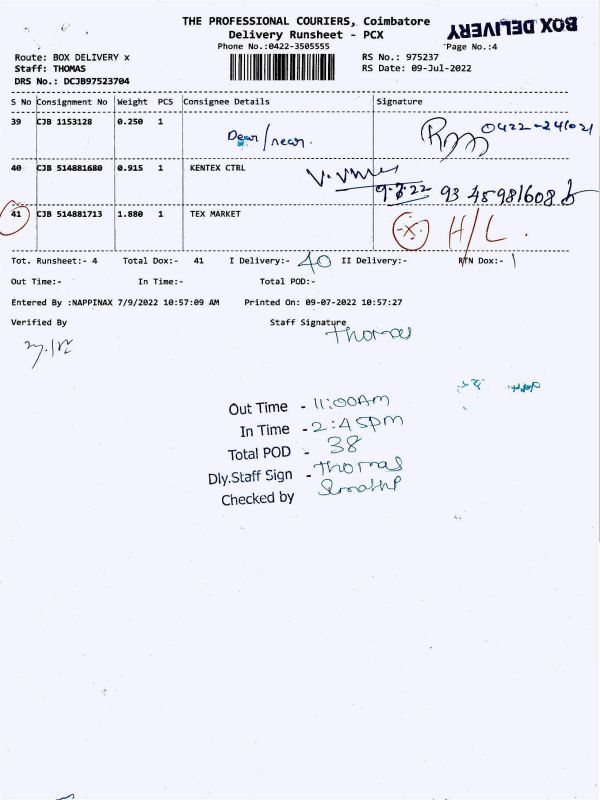 THE PROFESSIONAL COURIERS, Coimbatore
BOX DELIVERY
Delivery Runsheet - PCX
Phone No.:0422-3505555
Page No.:4
Route: BOX DELIVERY x
RS No.: 975237
Staff: THOMAS
RS Date: 09-Jul-2022
DRS No.: DCJB97523704
S No Consignment No Weight PCS Consignee Details Signature
39 CJB 1153128 0.250 1
0422-241021
40 CJB 514881680 0.915 1 KENTEX CTRL
41 CJB 514881713 1.880 1 TEX MARKET H/L.
Tot. Runsheet:- 4 Total Dox:- 41 I Delivery:- 40 II Delivery:- RTN Dox:- 1
Out Time:- In Time:- Total POD:-
Entered By :NAPPINAX 7/9/2022 10:57:09 AM Printed On: 09-07-2022 10:57:27
Verified By Staff Signature
Thomas
Out Time - 11:00AM
In Time - 2:45pm
Total POD - 38
Dly.Staff Sign - Thomas
Checked by